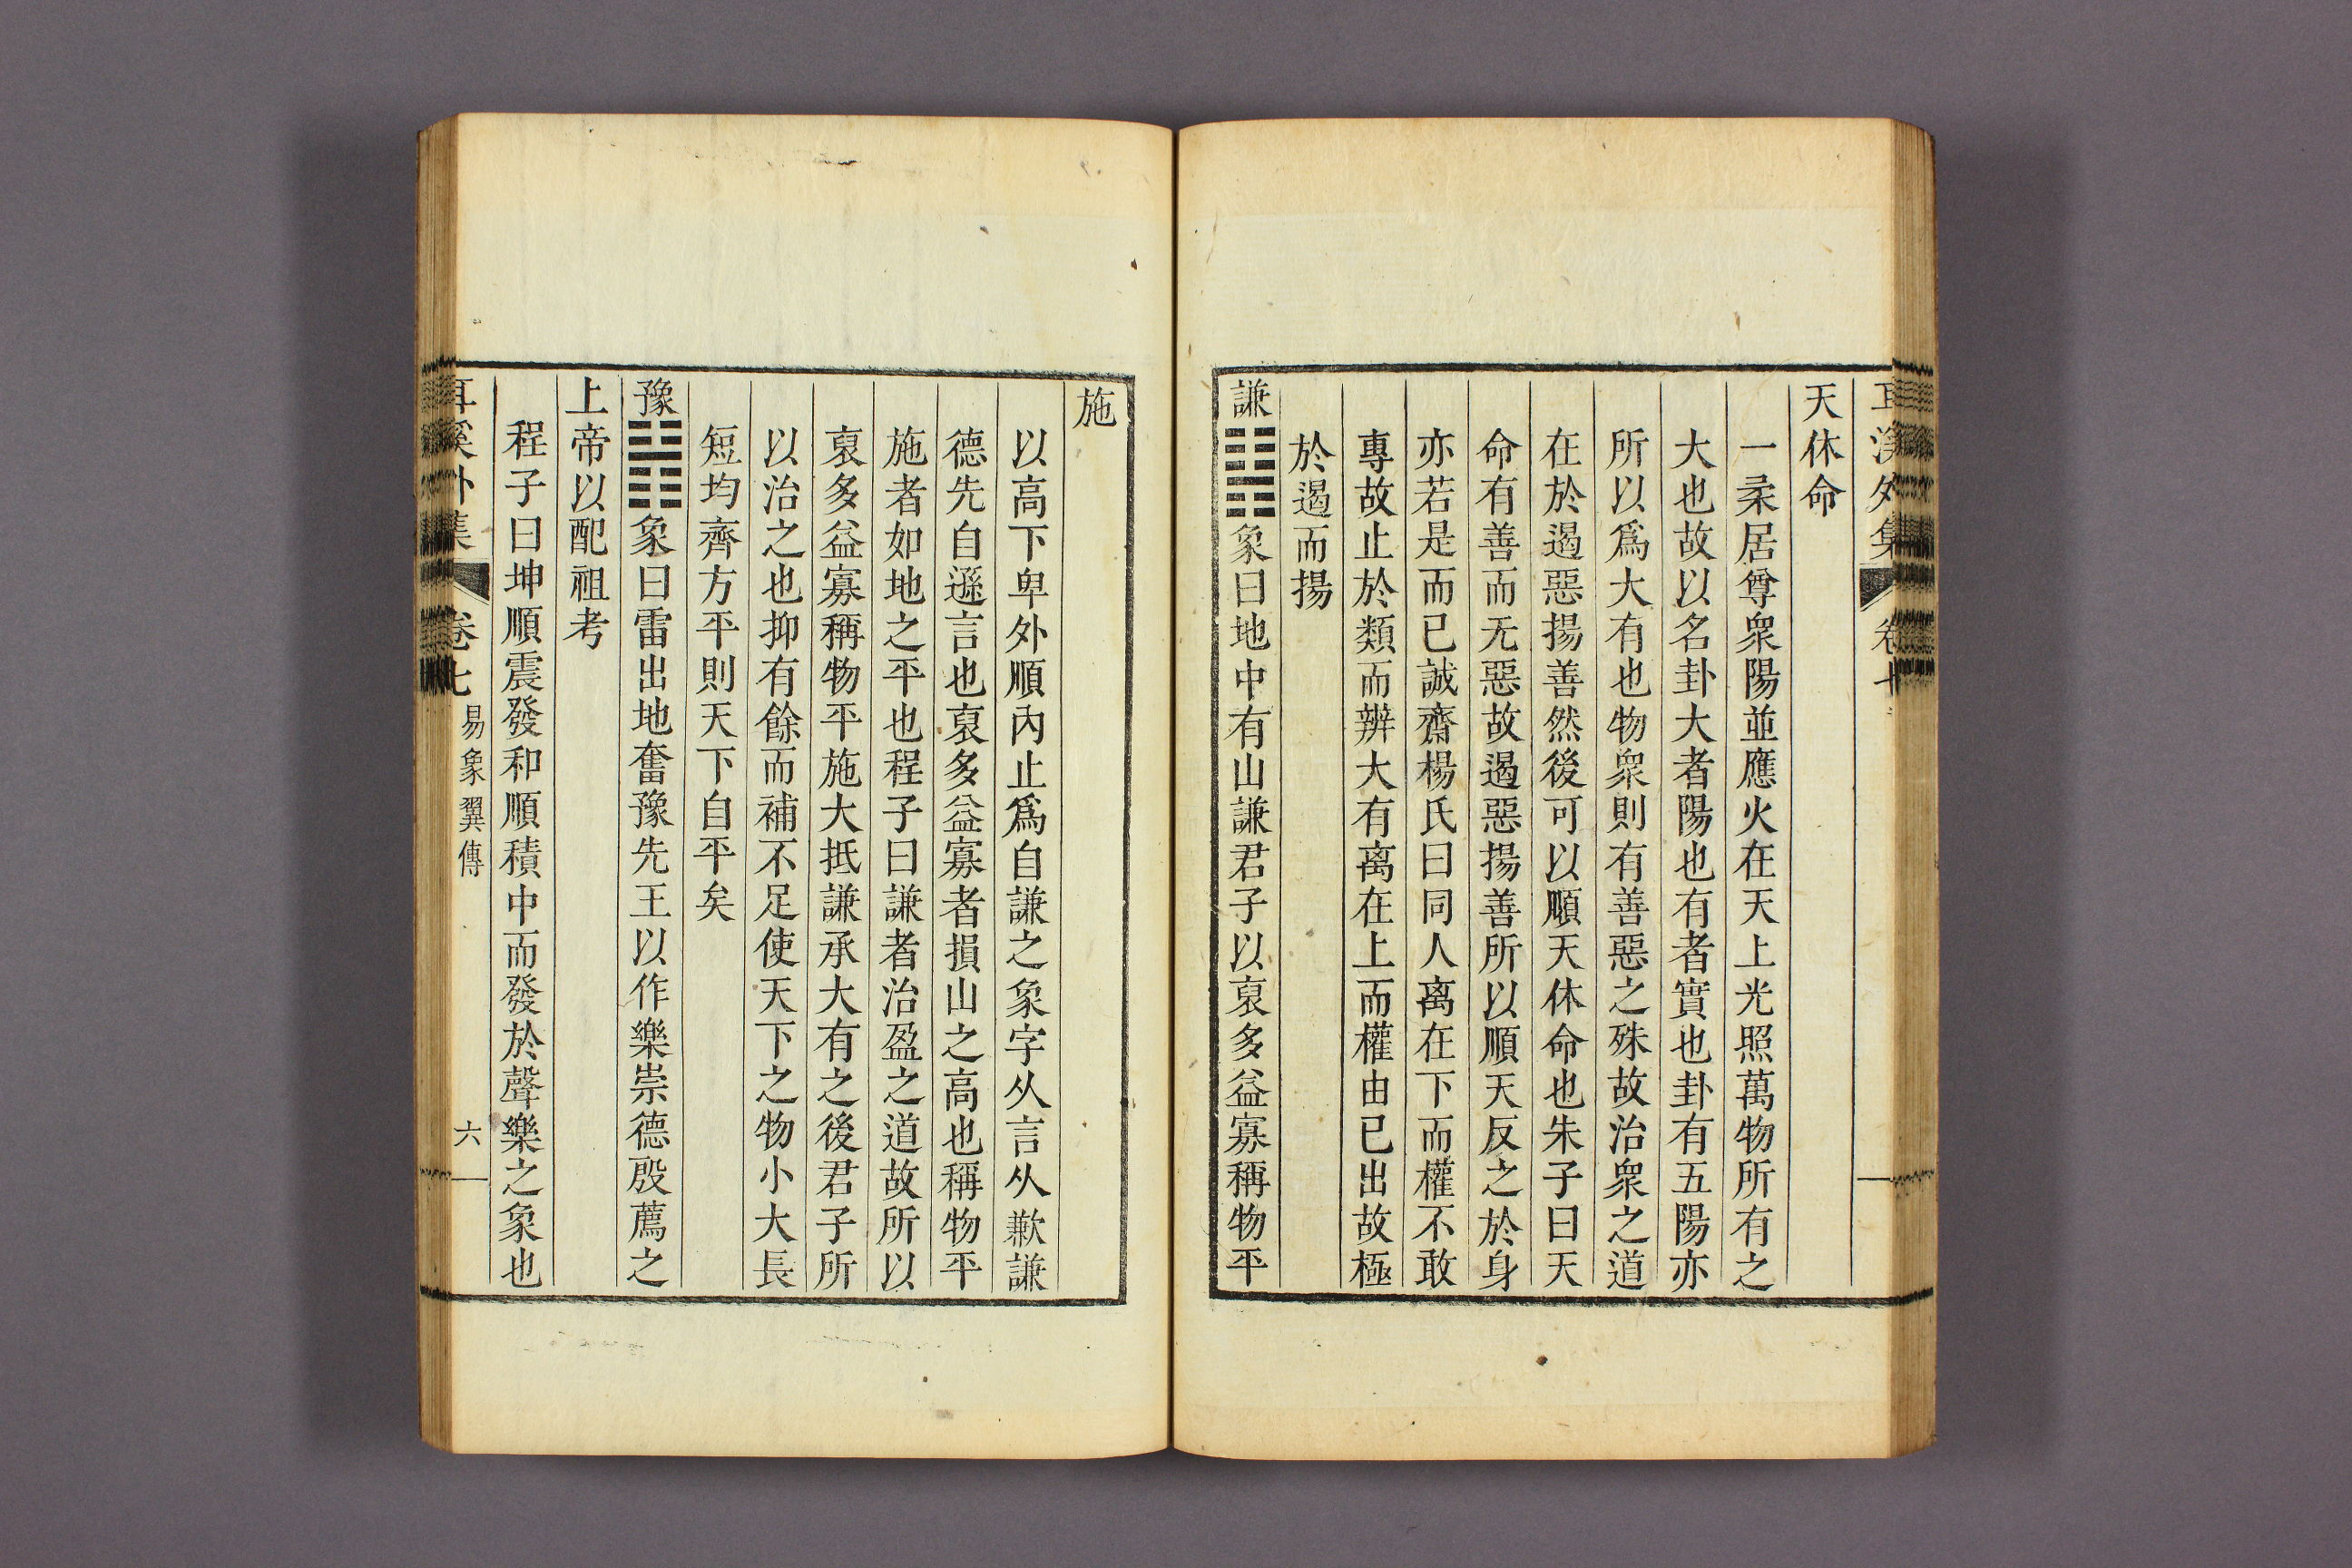 天休命
一柔居尊衆陽並應火在天上光照萬物所有之
大也故以名卦大者陽也有者實也卦有五陽亦
所以爲大有也物衆則有善惡之殊故治衆之道
在於遏惡揚善然後可以順天休命也朱子曰天
命有善而无惡故遏惡揚善所以順天反之於身
亦若是而已誠齋楊氏曰同人离在下而權不敢
專故止於類而辨大有离在上而權由已出故極
於遏而揚
謙䷎象曰地中有山謙君子以裒多益寡稱物平
施
以高下卑外順內止爲自謙之象字从言从歉謙
德先自遜言也裒多益寡者損山之高也稱物平
施者如地之平也程子曰謙者治盈之道故所以
裒多益寡稱物平施大抵謙承大有之後君子所
以治之也抑有餘而補不足使天下之物小大長
短均齊方平則天下自平矣
豫䷏象曰雷出地奮豫先王以作樂崇德殷薦之
上帝以配祖考
程子曰坤順震發和順積中而發於聲樂之象也
耳溪外集 卷七 易象翼傳 六